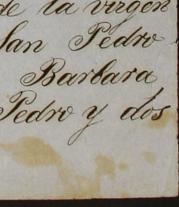 de la virgen
San Pedro
Barbara
Pedro y dos